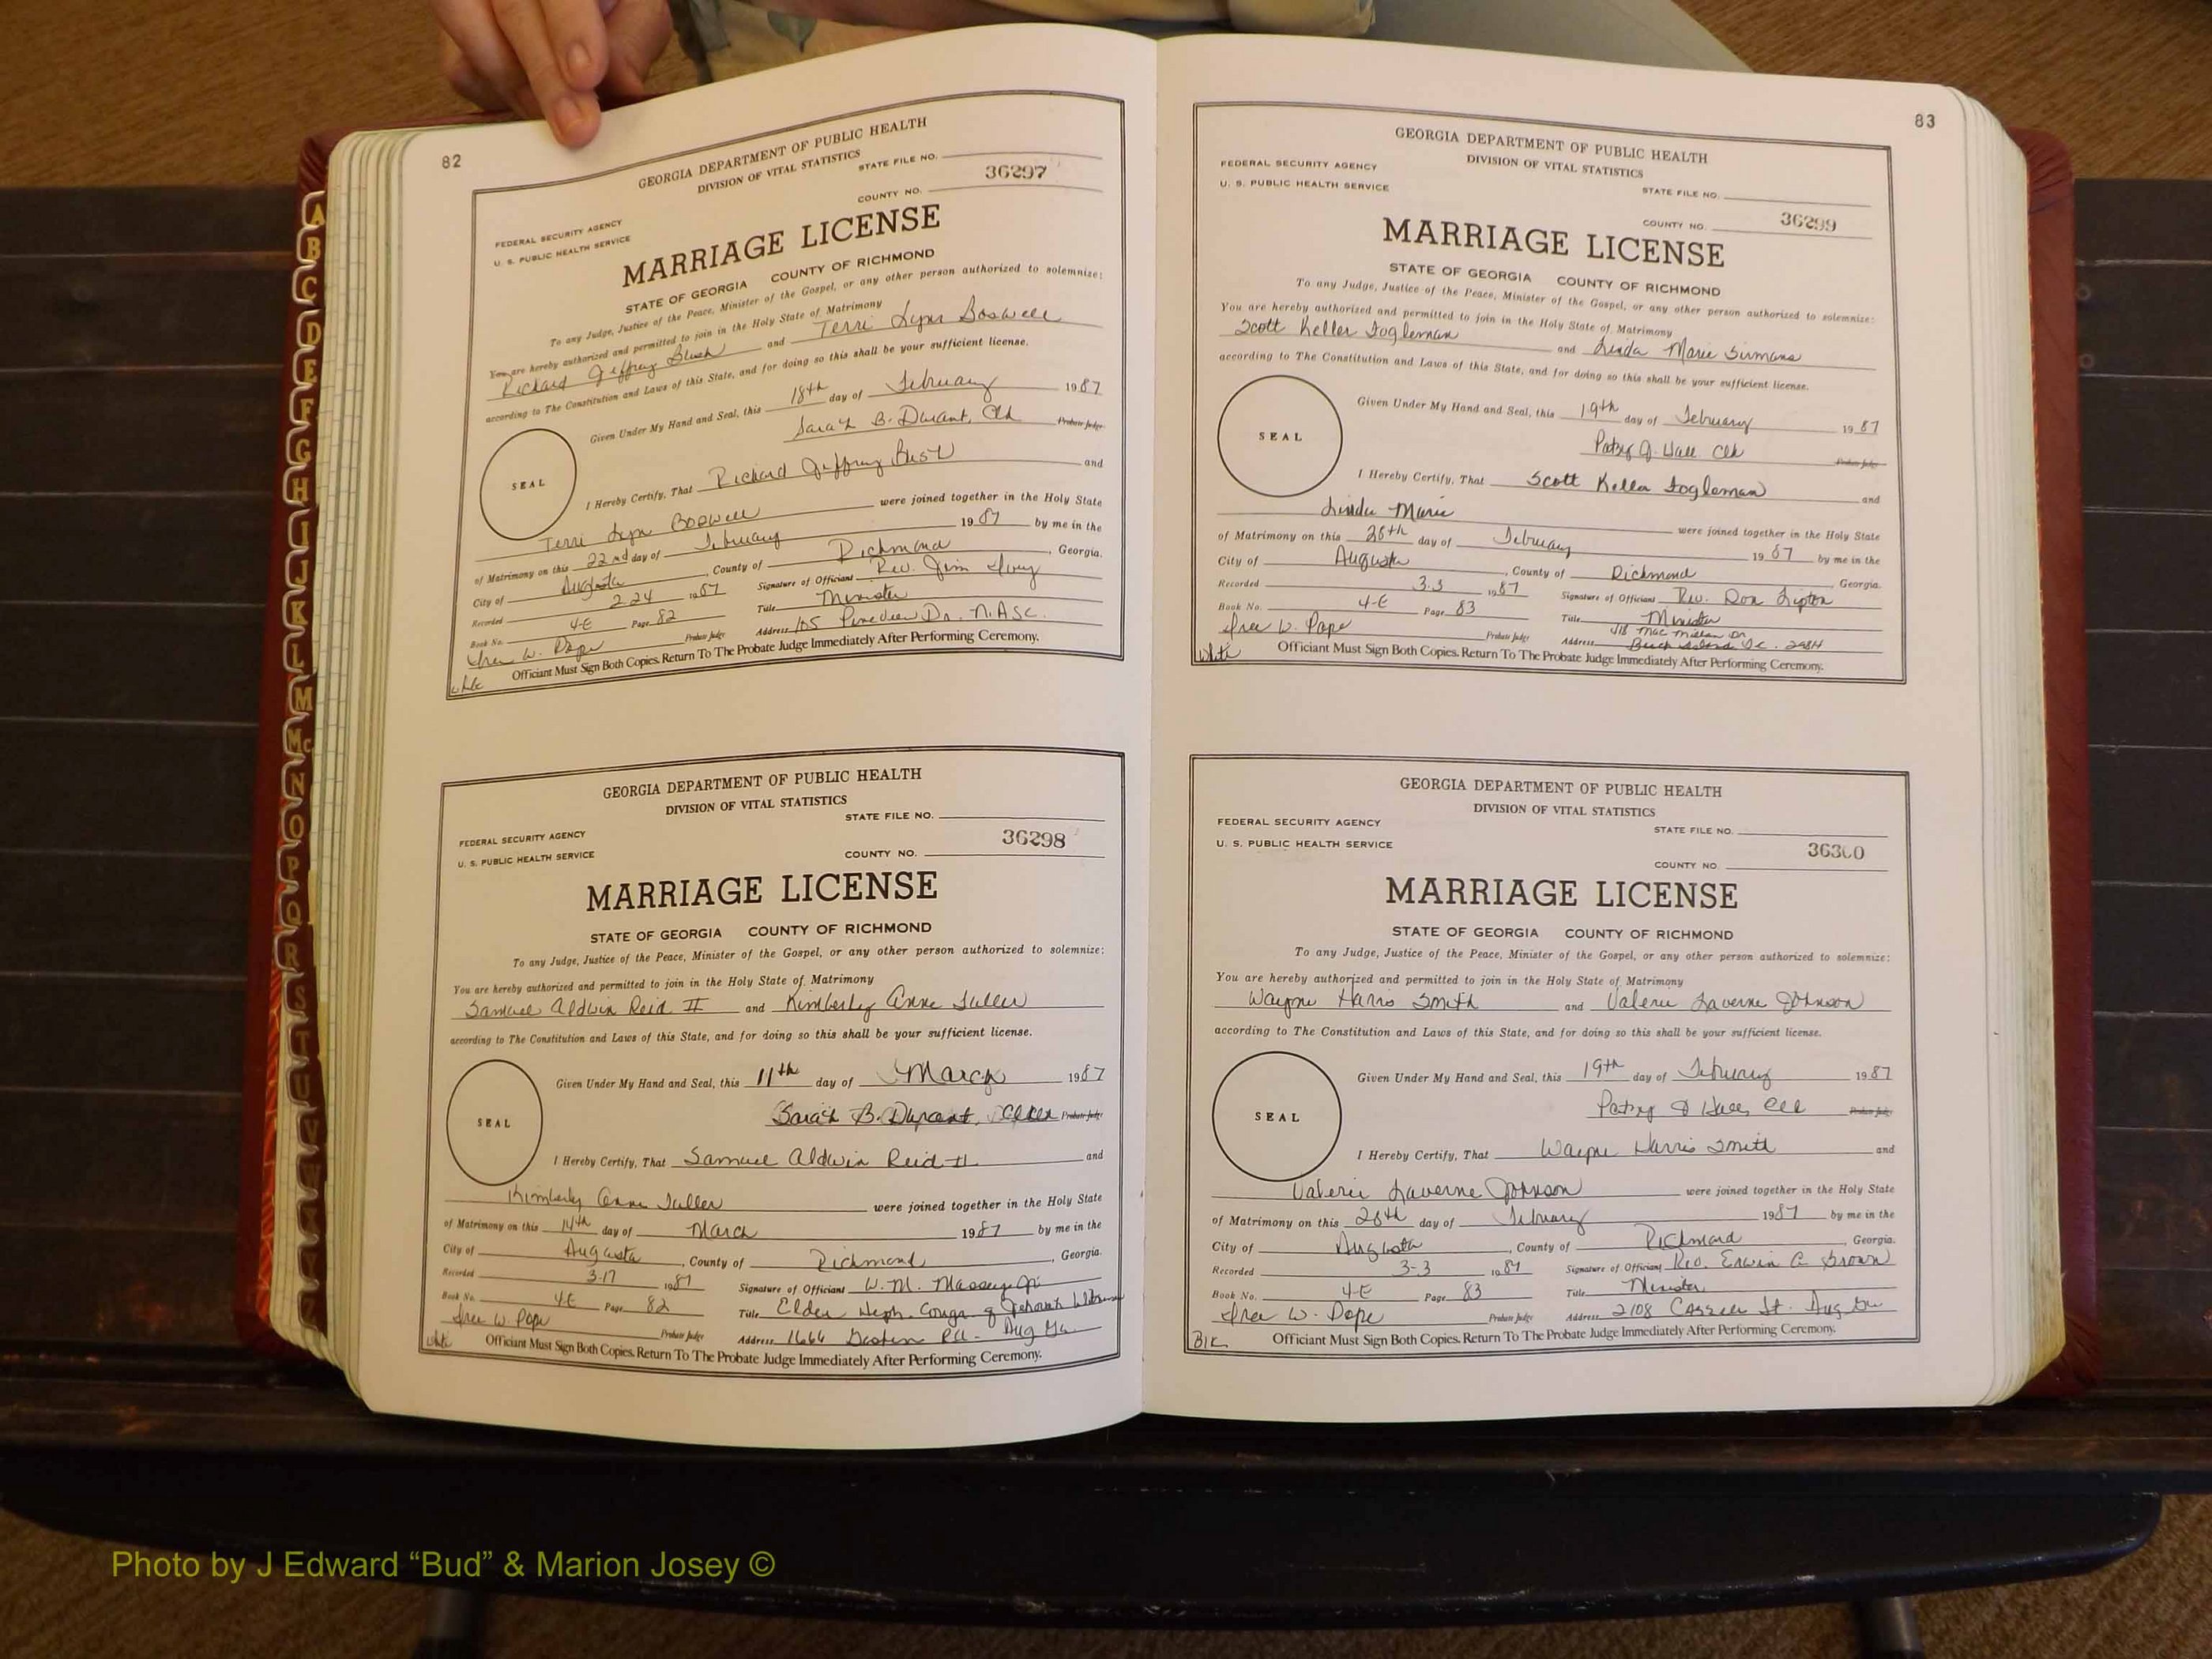 82
GEORGIA DEPARTMENT OF PUBLIC HEALTH
DIVISION OF VITAL STATISTICS
STATE FILE NO.
36297
COUNTY NO.
FEDERAL SECURITY AGENCY
U. S. PUBLIC HEALTH SERVICE
MARRIAGE LICENSE
STATE OF GEORGIA COUNTY OF RICHMOND
To any Judge, Justice of the Peace, Minister of the Gospel, or any other person authorized to solemnize:
You are hereby authorized and permitted to join in the Holy State of Matrimony
Richard Jeffrey and Terri Lynn Boswell
according to The Constitution and Laws of this State, and for doing so this shall be your sufficient license.
Given Under My Hand and Seal, this 18th day of February 1987
Sarah B. Durant, Clk Probate Judge
SEAL
I Hereby Certify, That Richard Jeffrey and
Terri Lynn Boswell were joined together in the Holy State
of Matrimony on this 22nd day of February 1987 by me in the
City of Augusta, County of Richmond, Georgia.
Recorded 2-24 1987 Signature of Officiant Rev. Jim
Book No. 4-E Page 82 Title Minister
W. Pope Probate Judge Address 105 Dr. N.A. S.C.
Officiant Must Sign Both Copies. Return To The Probate Judge Immediately After Performing Ceremony.
GEORGIA DEPARTMENT OF PUBLIC HEALTH
DIVISION OF VITAL STATISTICS
STATE FILE NO.
FEDERAL SECURITY AGENCY
36298
U. S. PUBLIC HEALTH SERVICE
COUNTY NO.
MARRIAGE LICENSE
STATE OF GEORGIA COUNTY OF RICHMOND
To any Judge, Justice of the Peace, Minister of the Gospel, or any other person authorized to solemnize:
You are hereby authorized and permitted to join in the Holy State of Matrimony
Samuel Aldwin Reid II and Kimberly Anne Fuller
according to The Constitution and Laws of this State, and for doing so this shall be your sufficient license.
Given Under My Hand and Seal, this 11th day of March 1987
Sarah B. Durant, Clerk Probate Judge
SEAL
I Hereby Certify, That Samuel Aldwin Reid II and
Kimberly Anne Fuller were joined together in the Holy State
of Matrimony on this 14th day of March 1987 by me in the
City of Augusta, County of Richmond, Georgia.
Recorded 3-17 1987 Signature of Officiant W. M. Massey Jr.
Book No. 4-E Page 82 Title Elder Heph. Conga of Jehovah Witnesses
W. Pope Probate Judge Address 1666 Rd. Aug Ga.
White Officiant Must Sign Both Copies. Return To The Probate Judge Immediately After Performing Ceremony.
83
GEORGIA DEPARTMENT OF PUBLIC HEALTH
DIVISION OF VITAL STATISTICS
FEDERAL SECURITY AGENCY
U. S. PUBLIC HEALTH SERVICE
STATE FILE NO.
COUNTY NO. 36299
MARRIAGE LICENSE
STATE OF GEORGIA COUNTY OF RICHMOND
To any Judge, Justice of the Peace, Minister of the Gospel, or any other person authorized to solemnize:
You are hereby authorized and permitted to join in the Holy State of Matrimony
Scott Keller Fogleman and Linda Marie Sirmans
according to The Constitution and Laws of this State, and for doing so this shall be your sufficient license.
Given Under My Hand and Seal, this 19th day of February 1987
Patsy J. Hall Clk Probate Judge
SEAL
I Hereby Certify, That Scott Keller Fogleman and
Linda Marie were joined together in the Holy State
of Matrimony on this 28th day of February 1987 by me in the
City of Augusta, County of Richmond Georgia.
Recorded 3-3 1987 Signature of Officiant Rev. Don Lipton
Book No. 4-E Page 83 Title Minister
W. Pope Probate Judge Address Mac Millan Dr
White Officiant Must Sign Both Copies. Return To The Probate Judge Immediately After Performing Ceremony.
GEORGIA DEPARTMENT OF PUBLIC HEALTH
DIVISION OF VITAL STATISTICS
FEDERAL SECURITY AGENCY
STATE FILE NO.
U. S. PUBLIC HEALTH SERVICE
36300
COUNTY NO.
MARRIAGE LICENSE
STATE OF GEORGIA COUNTY OF RICHMOND
To any Judge, Justice of the Peace, Minister of the Gospel, or any other person authorized to solemnize:
You are hereby authorized and permitted to join in the Holy State of Matrimony
Wayne Harris Smith and Valerie Laverne Johnson
according to The Constitution and Laws of this State, and for doing so this shall be your sufficient license.
Given Under My Hand and Seal, this 19th day of February 1987
Patsy J Hall Clk Probate Judge
SEAL
I Hereby Certify, That Wayne Harris Smith and
Valerie Laverne Johnson were joined together in the Holy State
of Matrimony on this 28th day of February 1987 by me in the
City of Augusta, County of Richmond, Georgia.
Recorded 3-3 1987 Signature of Officiant Rev. Erwin C. Brown
Book No. 4-E Page 83 Title Minister
W. Pope Probate Judge Address 2108 St. Aug Ga
Blk Officiant Must Sign Both Copies. Return To The Probate Judge Immediately After Performing Ceremony.
A
B
C
D
E
F
G
H
I
J
K
L
M
Mc
N
O
P
Q
R
S
T
U
V
Photo by J Edward “Bud” & Marion Josey ©